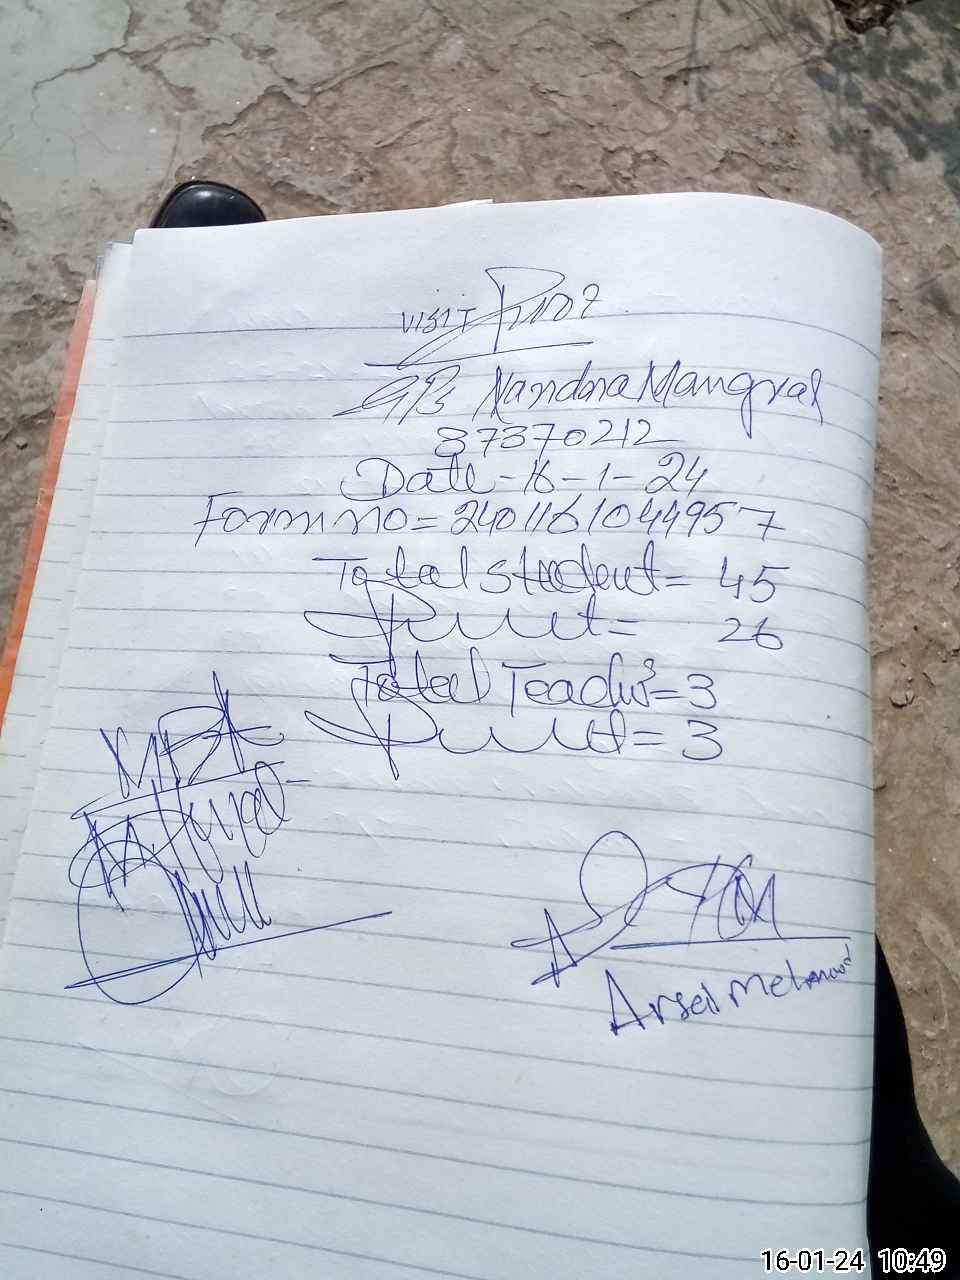 VISIT Proof
GPS Nandna Mangral
37370212
Date - 16-1-24
Form no = 240116104495 7
Total student = 45
Present = 26
Total Teachers = 3
Present = 3
Arsel Mehmood
16-01-24 10:49